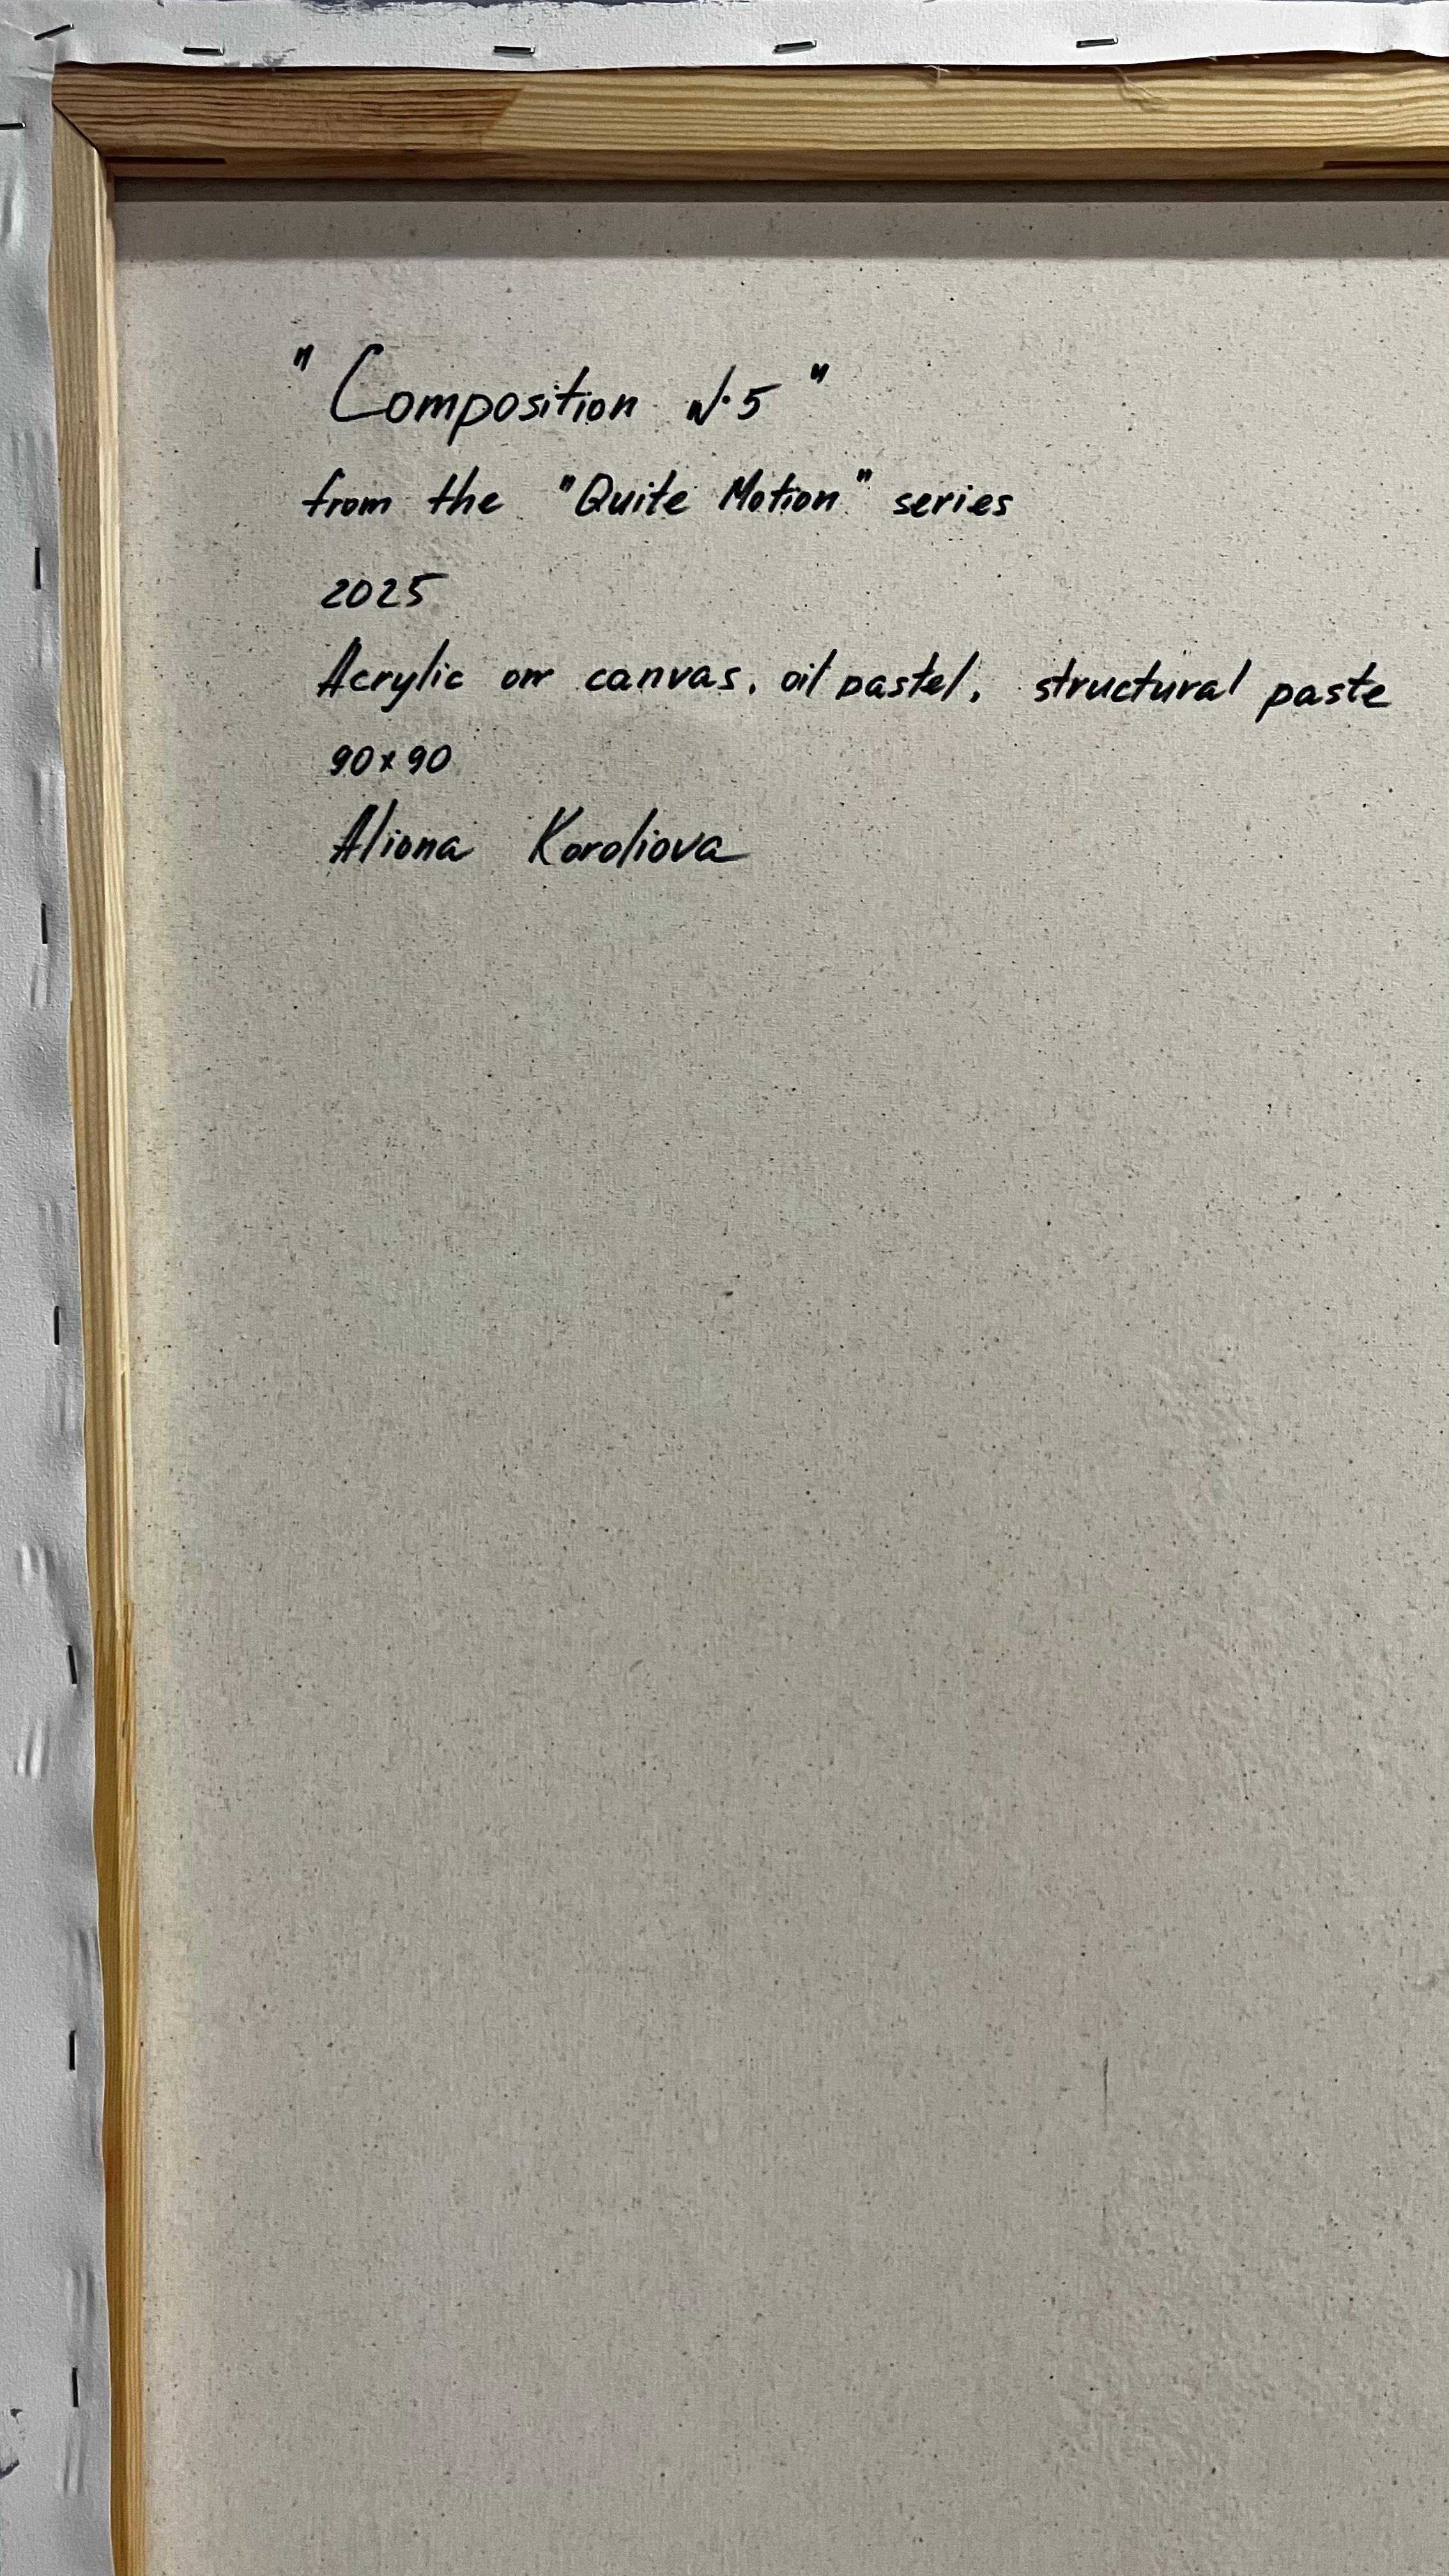 "Composition N.5"
from the "Quite Motion" series
2025
Acrylic on canvas, oil pastel, structural paste
90x90
Aliona Koroliova